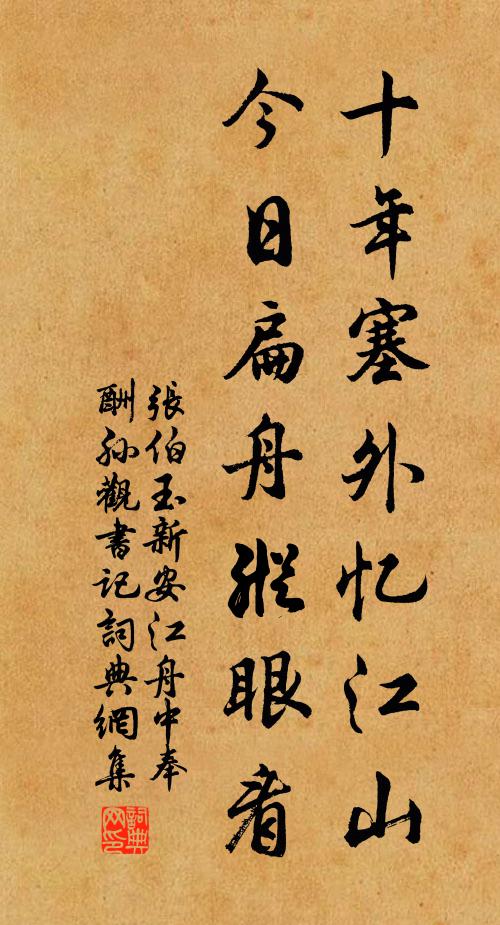 十年塞外忆江山
今日扁舟縱眼看
張伯玉新安江舟中奉
酬孙觀書记詞典網集
詞典网印